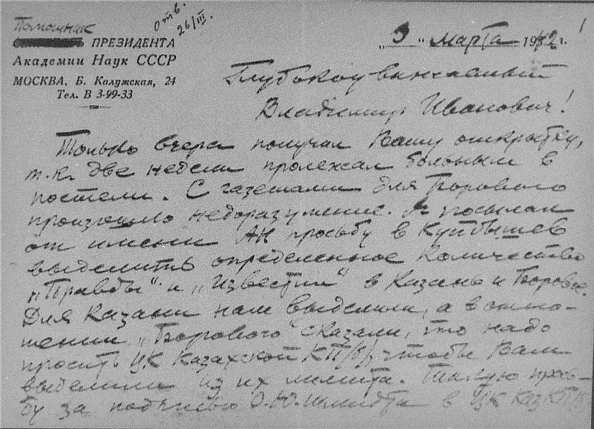 Помощник
ПРЕЗИДЕНТА
Академии Наук СССР
МОСКВА, Б. Калужская, 24
Тел. В 3-99-33
Отв.
26/III.
„3 марта 1942 г.
Глубокоуважаемый
Владимир Иванович!
Только вчера получил Вашу открытку,
т.к. две недели пролежал больным в
постели. С газетами для Борового
произошло недоразумение. Я посылал
от имени АН просьбу в Куйбышев
выделить определенное количество
„Правды" и „Известий" в Казань и Боровое.
Для Казани нам выделили, а в отно-
шении „Борового" сказали, что надо
просить ЦК Казахской КП/б/, чтобы Вам
выделили из их лимита. Такую прось-
бу за подписью О.Ю. Шмидта в ЦК КазКП/б/